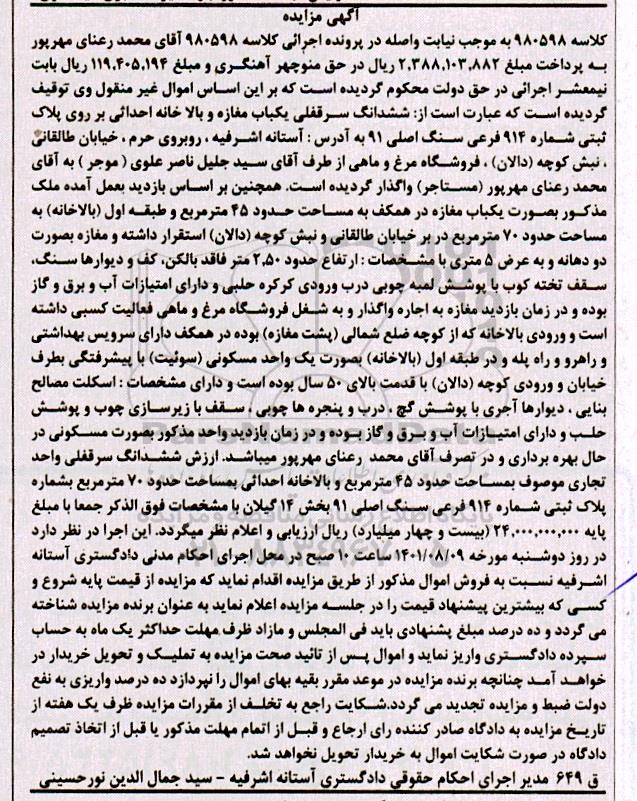 آگهی مزایده
کلاسه ۹۸۰۵۹۸ به موجب نیابت واصله در پرونده اجرائی کلاسه ۹۸۰۵۹۸ آقای محمد رعنای مهرپور
به پرداخت مبلغ ۲,۳۸۸,۱۰۳,۸۸۲ ریال در حق منوچهر آهنگری و مبلغ ۱۱۹,۴۰۵,۱۹۴ ریال بابت
نیمعشر اجرائی در حق دولت محکوم گردیده است که بر این اساس اموال غیر منقول وی توقیف
گردیده است که عبارت است از: ششدانگ سرقفلی یکباب مغازه و بالا خانه احداثی بر روی پلاک
ثبتی شماره ۹۱۴ فرعی سنگ اصلی ۹۱ به آدرس : آستانه اشرفیه ، روبروی حرم ، خیابان طالقانی
، نبش کوچه (دالان) ، فروشگاه مرغ و ماهی از طرف آقای سید جلیل ناصر علوی ( موجر ) به آقای
محمد رعنای مهرپور (مستاجر) واگذار گردیده است. همچنین بر اساس بازدید بعمل آمده ملک
مذکور بصورت یکباب مغازه در همکف به مساحت حدود ۴۵ مترمربع و طبقه اول (بالاخانه) به
مساحت حدود ۷۰ مترمربع در بر خیابان طالقانی و نبش کوچه (دالان) استقرار داشته و مغازه بصورت
دو دهانه و به عرض ۵ متری با مشخصات : ارتفاع حدود ۲,۵۰ متر فاقد بالکن، کف و دیوارها سنگ،
سقف تخته کوب با پوشش لمبه چوبی درب ورودی کرکره حلبی و دارای امتیازات آب و برق و گاز
بوده و در زمان بازدید مغازه به اجاره واگذار و به شغل فروشگاه مرغ و ماهی فعالیت کسبی داشته
است و ورودی بالاخانه که از کوچه ضلع شمالی (پشت مغازه) بوده در همکف دارای سرویس بهداشتی
و راهرو و راه پله و در طبقه اول (بالاخانه) بصورت یک واحد مسکونی (سوئیت) با پیشرفتگی بطرف
خیابان و ورودی کوچه (دالان) با قدمت بالای ۵۰ سال بوده است و دارای مشخصات : اسکلت مصالح
بنایی ، دیوارها آجری با پوشش گچ ، درب و پنجره ها چوبی ، سقف با زیرسازی چوب و پوشش
حلب و دارای امتیازات آب و برق و گاز بوده و در زمان بازدید واحد مذکور بصورت مسکونی در
حال بهره برداری و در تصرف آقای محمد رعنای مهرپور میباشد. ارزش ششدانگ سرقفلی واحد
تجاری موصوف بمساحت حدود ۴۵ مترمربع و بالاخانه احداثی بمساحت حدود ۷۰ مترمربع بشماره
پلاک ثبتی شماره ۹۱۴ فرعی سنگ اصلی ۹۱ بخش ۱۴ گیلان با مشخصات فوق الذکر جمعا با مبلغ
پایه ۲۴,۰۰۰,۰۰۰,۰۰۰ (بیست و چهار میلیارد) ریال ارزیابی و اعلام نظر میگردد. این اجرا در نظر دارد
در روز دوشنبه مورخه ۱۴۰۱/۰۸/۰۹ ساعت ۱۰ صبح در محل اجرای احکام مدنی دادگستری آستانه
اشرفیه نسبت به فروش اموال مذکور از طریق مزایده اقدام نماید که مزایده از قیمت پایه شروع و
کسی که بیشترین پیشنهاد قیمت را در جلسه مزایده اعلام نماید به عنوان برنده مزایده شناخته
می گردد و ده درصد مبلغ پشنهادی باید فی المجلس و مازاد ظرف مهلت حداکثر یک ماه به حساب
سپرده دادگستری واریز نماید و اموال پس از تائید صحت مزایده به تملیک و تحویل خریدار در
خواهد آمد چنانچه برنده مزایده در موعد مقرر بقیه بهای اموال را نپردازد ده درصد واریزی به نفع
دولت ضبط و مزایده تجدید می گردد.شکایت راجع به تخلف از مقررات مزایده ظرف یک هفته از
تاریخ مزایده به دادگاه صادر کننده رای ارجاع و قبل از اتمام مهلت مذکور یا قبل از اتخاذ تصمیم
دادگاه در صورت شکایت اموال به خریدار تحویل نخواهد شد.
ق ۶۴۹ مدیر اجرای احکام حقوقی دادگستری آستانه اشرفیه – سید جمال الدین نورحسینی